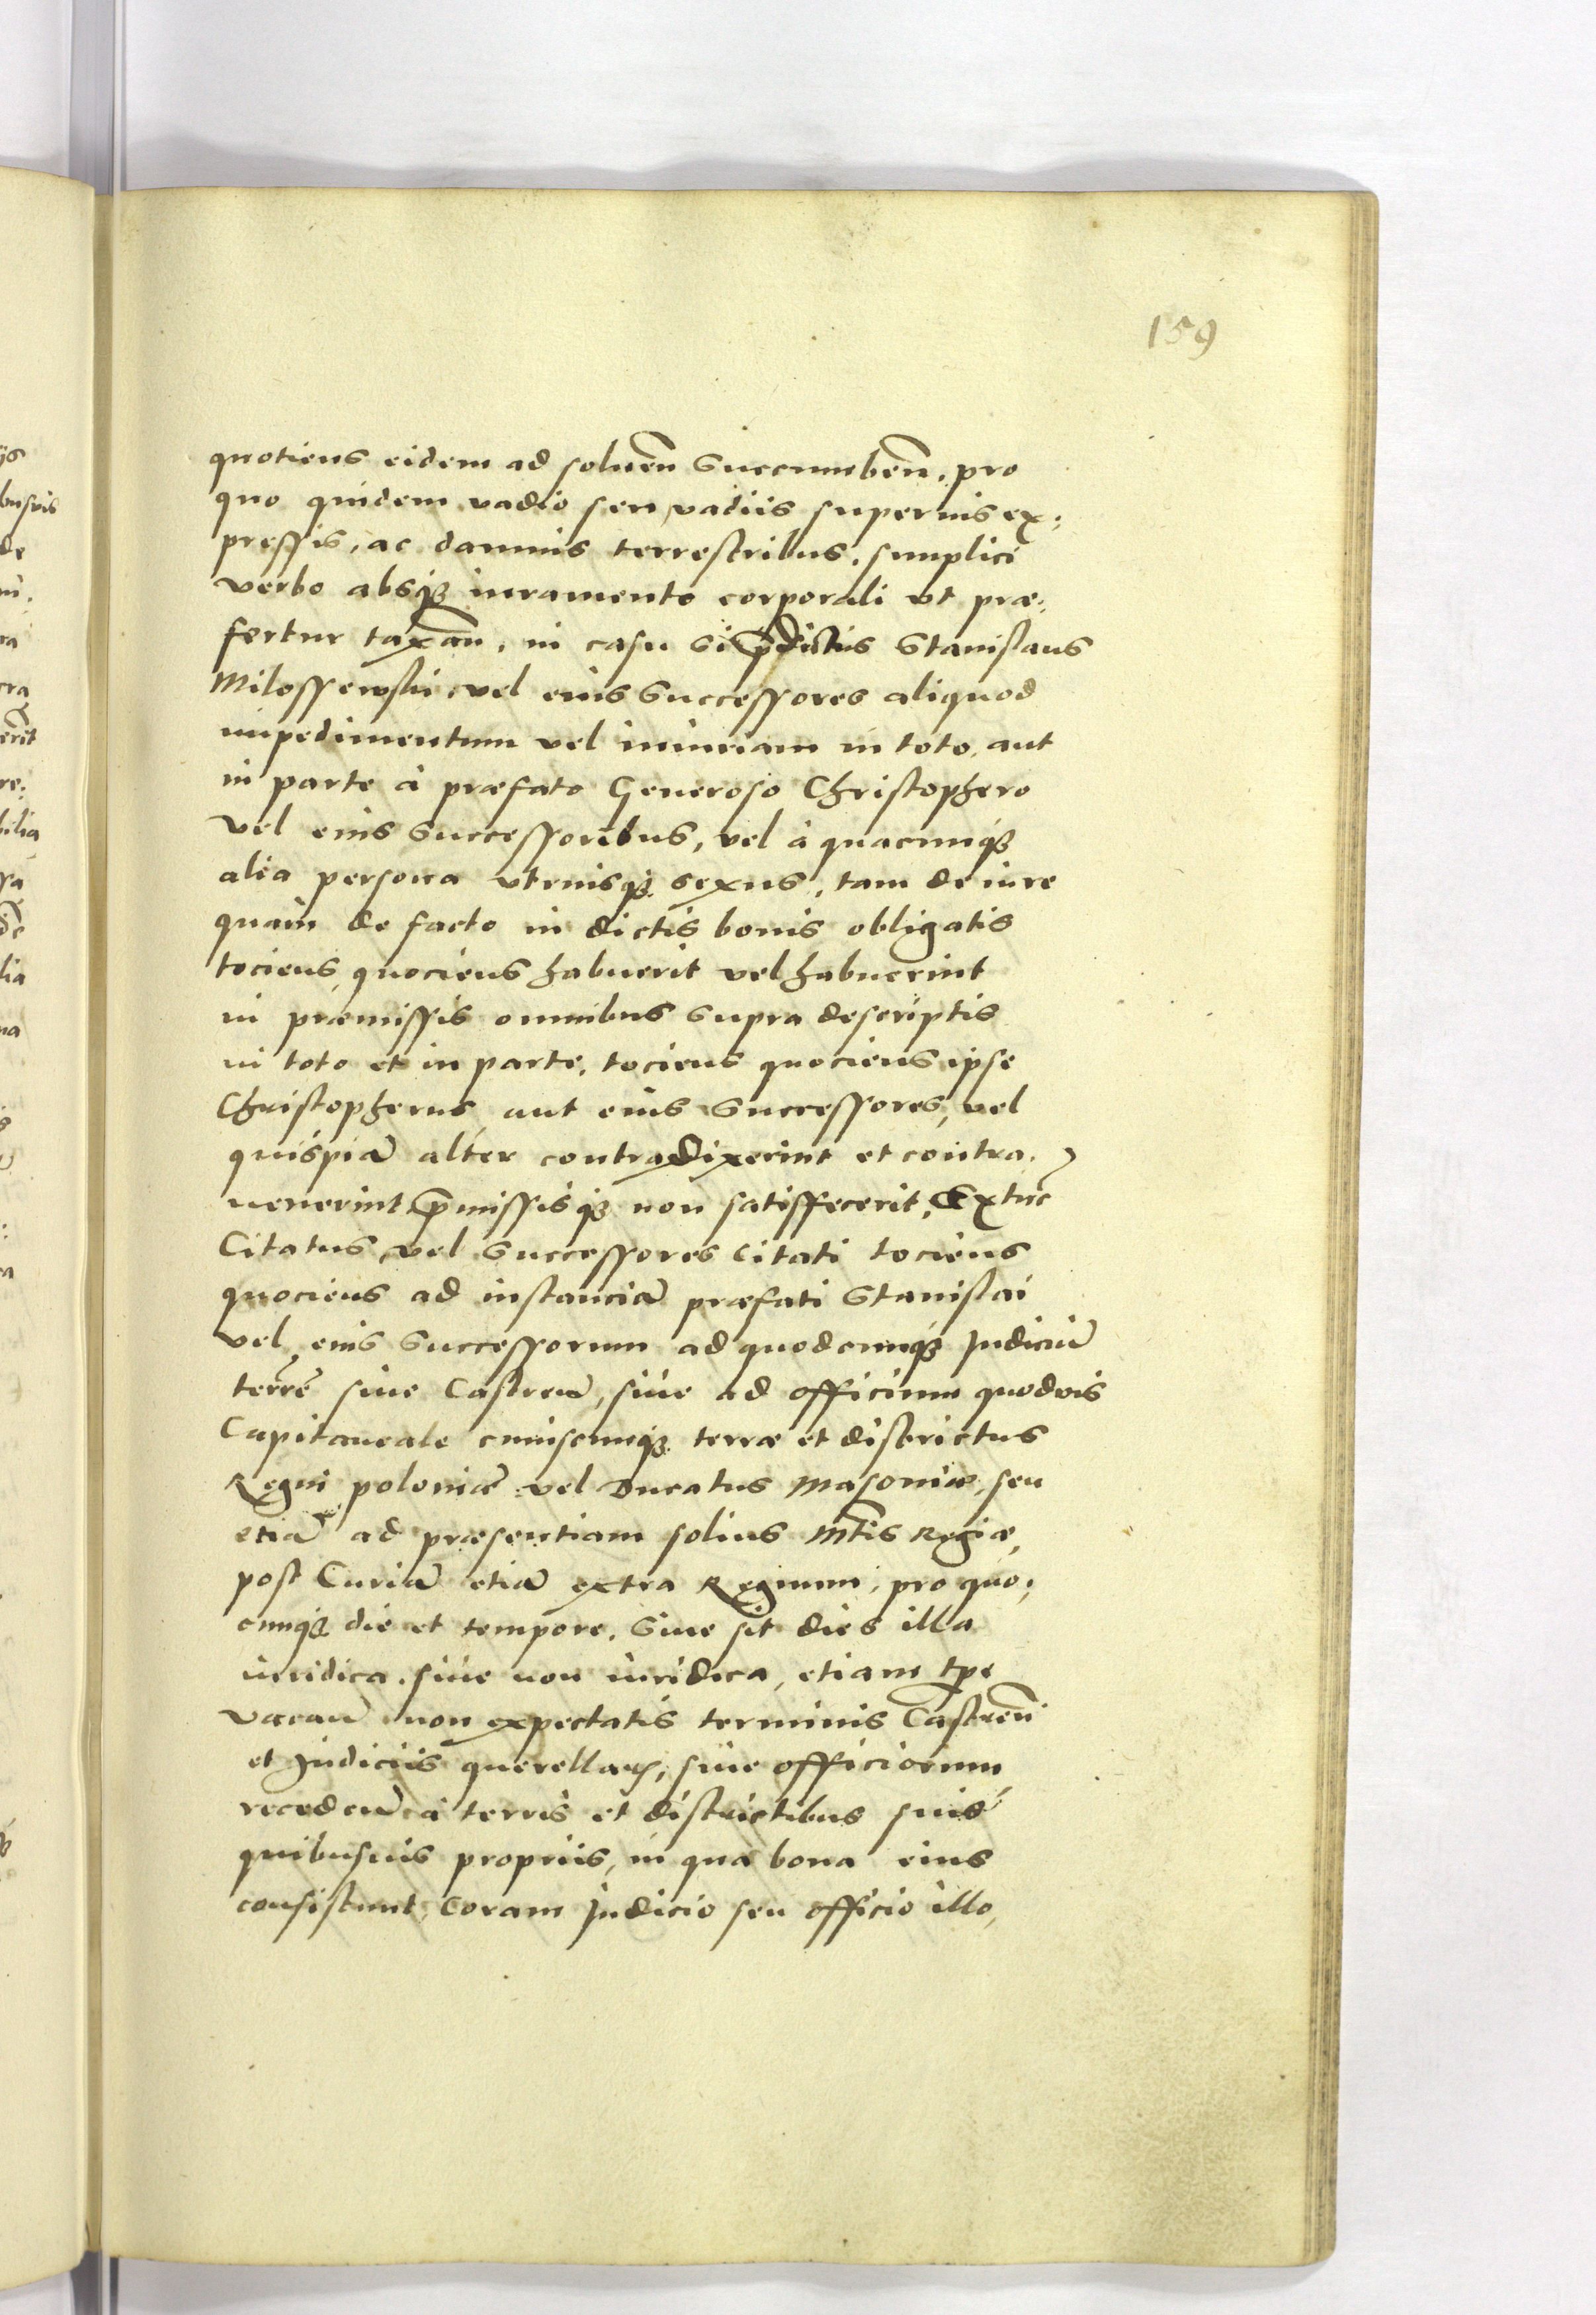 159
quotiens eidem ad soluen̄ Succumben̄. pro
quo quidem vadio seu vadiis superius ex:
pressis, ac damnis terrestribus. simplici
verbo absq₃ iuramento corporali vt præ:
fertur taxan̄. in casu Si p̄dictus Stanislaus
Milossewski, vel eius Successores aliquod
impedimentum vel iniuriam in toto, aut
in parte à præfato Generoso Christophero
Vel eius Successoribus, vel à quacunq₃
alia persona vtriusq₃ sexus, tam de iure
quàm de facto in dictis bonis obligatis
tociens, quociens habuerit vel habuerint
in præmissis omnibus supra descriptis
in toto et in parte, tociens quociens ipse
Christopherus aut eius Successores, vel
quispiā alter contradixerint et contra.
uenerint, p̄missisq₃ non satisffecerit, Extūc
Citatus vel Successores Citati tociens
quociens ad instanciā præfati Stanislai
Vel eius Successorum ad quodcunq₃ Judiciū
terrē siue Castren̄, siue ad officium quoduis
Capitaneale cuiuscunq₃ terræ et districtus
Regni poloniæ vel Ducatus Masoniæ, seu
etiā ad præsentiam solius Mtis Regiæ,
post Curiā etiā extra Regnum, pro quo:
cunq₃ die et tempore. Siue sit dies illa
iuridica, siue non iuridica, etiam tpe
vacan̄ non expectatis terminis Castren̄
et Judiciis querellaꝝ, siue officiorum
receden̄ à terris et districtibus suis
quibusuis propriis, in qua bona eius
consistunt, Coram Judicio seu officio illo,